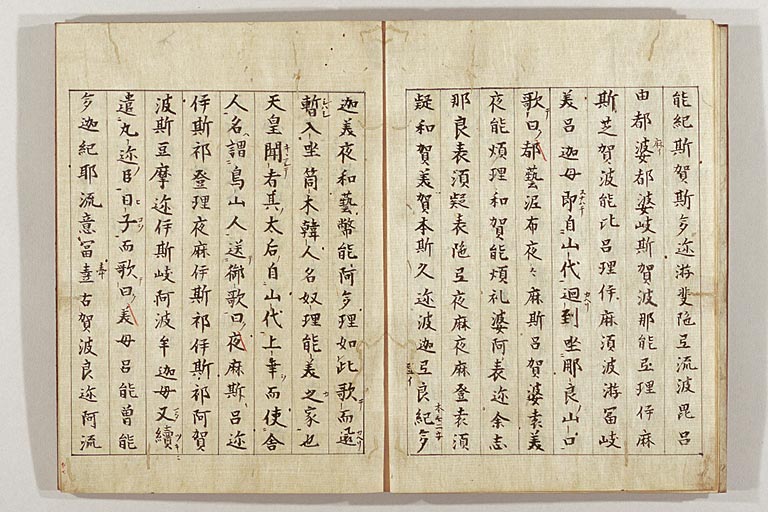 能紀斯賀斯多迩游斐陁弖流波毘呂
由都婆都婆岐斯賀波那能弖理伊麻
斯芝賀波能比呂理伊麻須波游冨岐
美呂迦母即自山代迴到坐那良山口
歌曰都藝泥布夜々麻斯呂賀婆袁美
夜能煩理和賀能煩礼婆阿袁迩余志
那良袁須疑袁陁弖夜麻夜麻登袁須
疑和賀美賀本斯久迩波迦弖良紀多
迦美夜和藝幣能阿多理如此歌而還
暫入坐筒木韓人名奴理能美之家也
天皇聞者其太后自山代上幸而使舎
人名謂鳥山人送御歌曰夜麻斯呂迩
伊斯祁登理夜麻伊斯祁伊斯祁阿賀
波斯豆摩迩伊斯岐阿波牟迦母又續
遣丸迩臣口子而歌曰美母呂能曽能
多迦紀耶流意冨壹古賀波良迩阿流